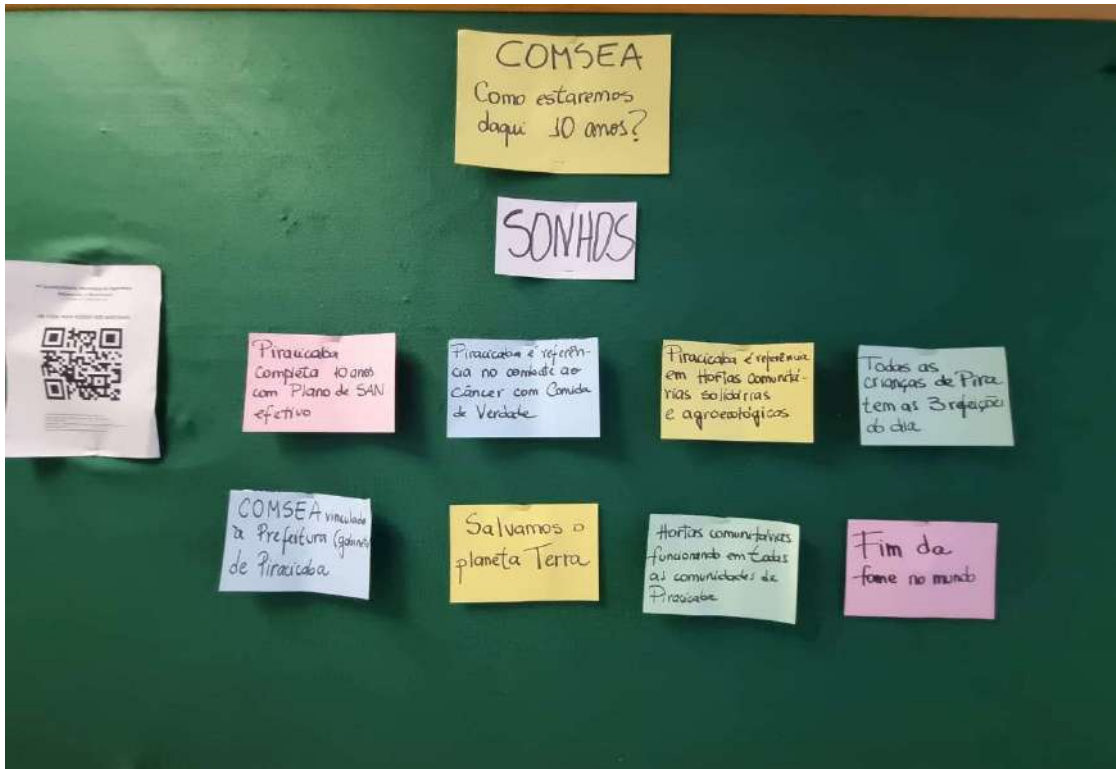 COMSEA
Como estaremos
daqui 10 anos?
SONHOS
Piracicaba
Completa 10 anos
com Plano de SAN
efetivo
Piracicaba é referên-
cia no combate ao
câncer com Comida
de Verdade
Piracicaba é referência
em Hortas Comunitá-
rias solidárias
e agroecológicas
Todas as
crianças de Pira
tem as 3 refeições
do dia
COMSEA vinculado
à Prefeitura (gabinete)
de Piracicaba
Salvamos o
planeta Terra
Hortas comunitárias
funcionando em todas
as comunidades de
Piracicaba
Fim da
fome no mundo